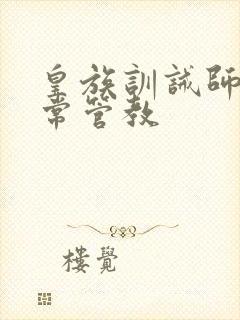 皇族訓誡師
常管教
樓覺